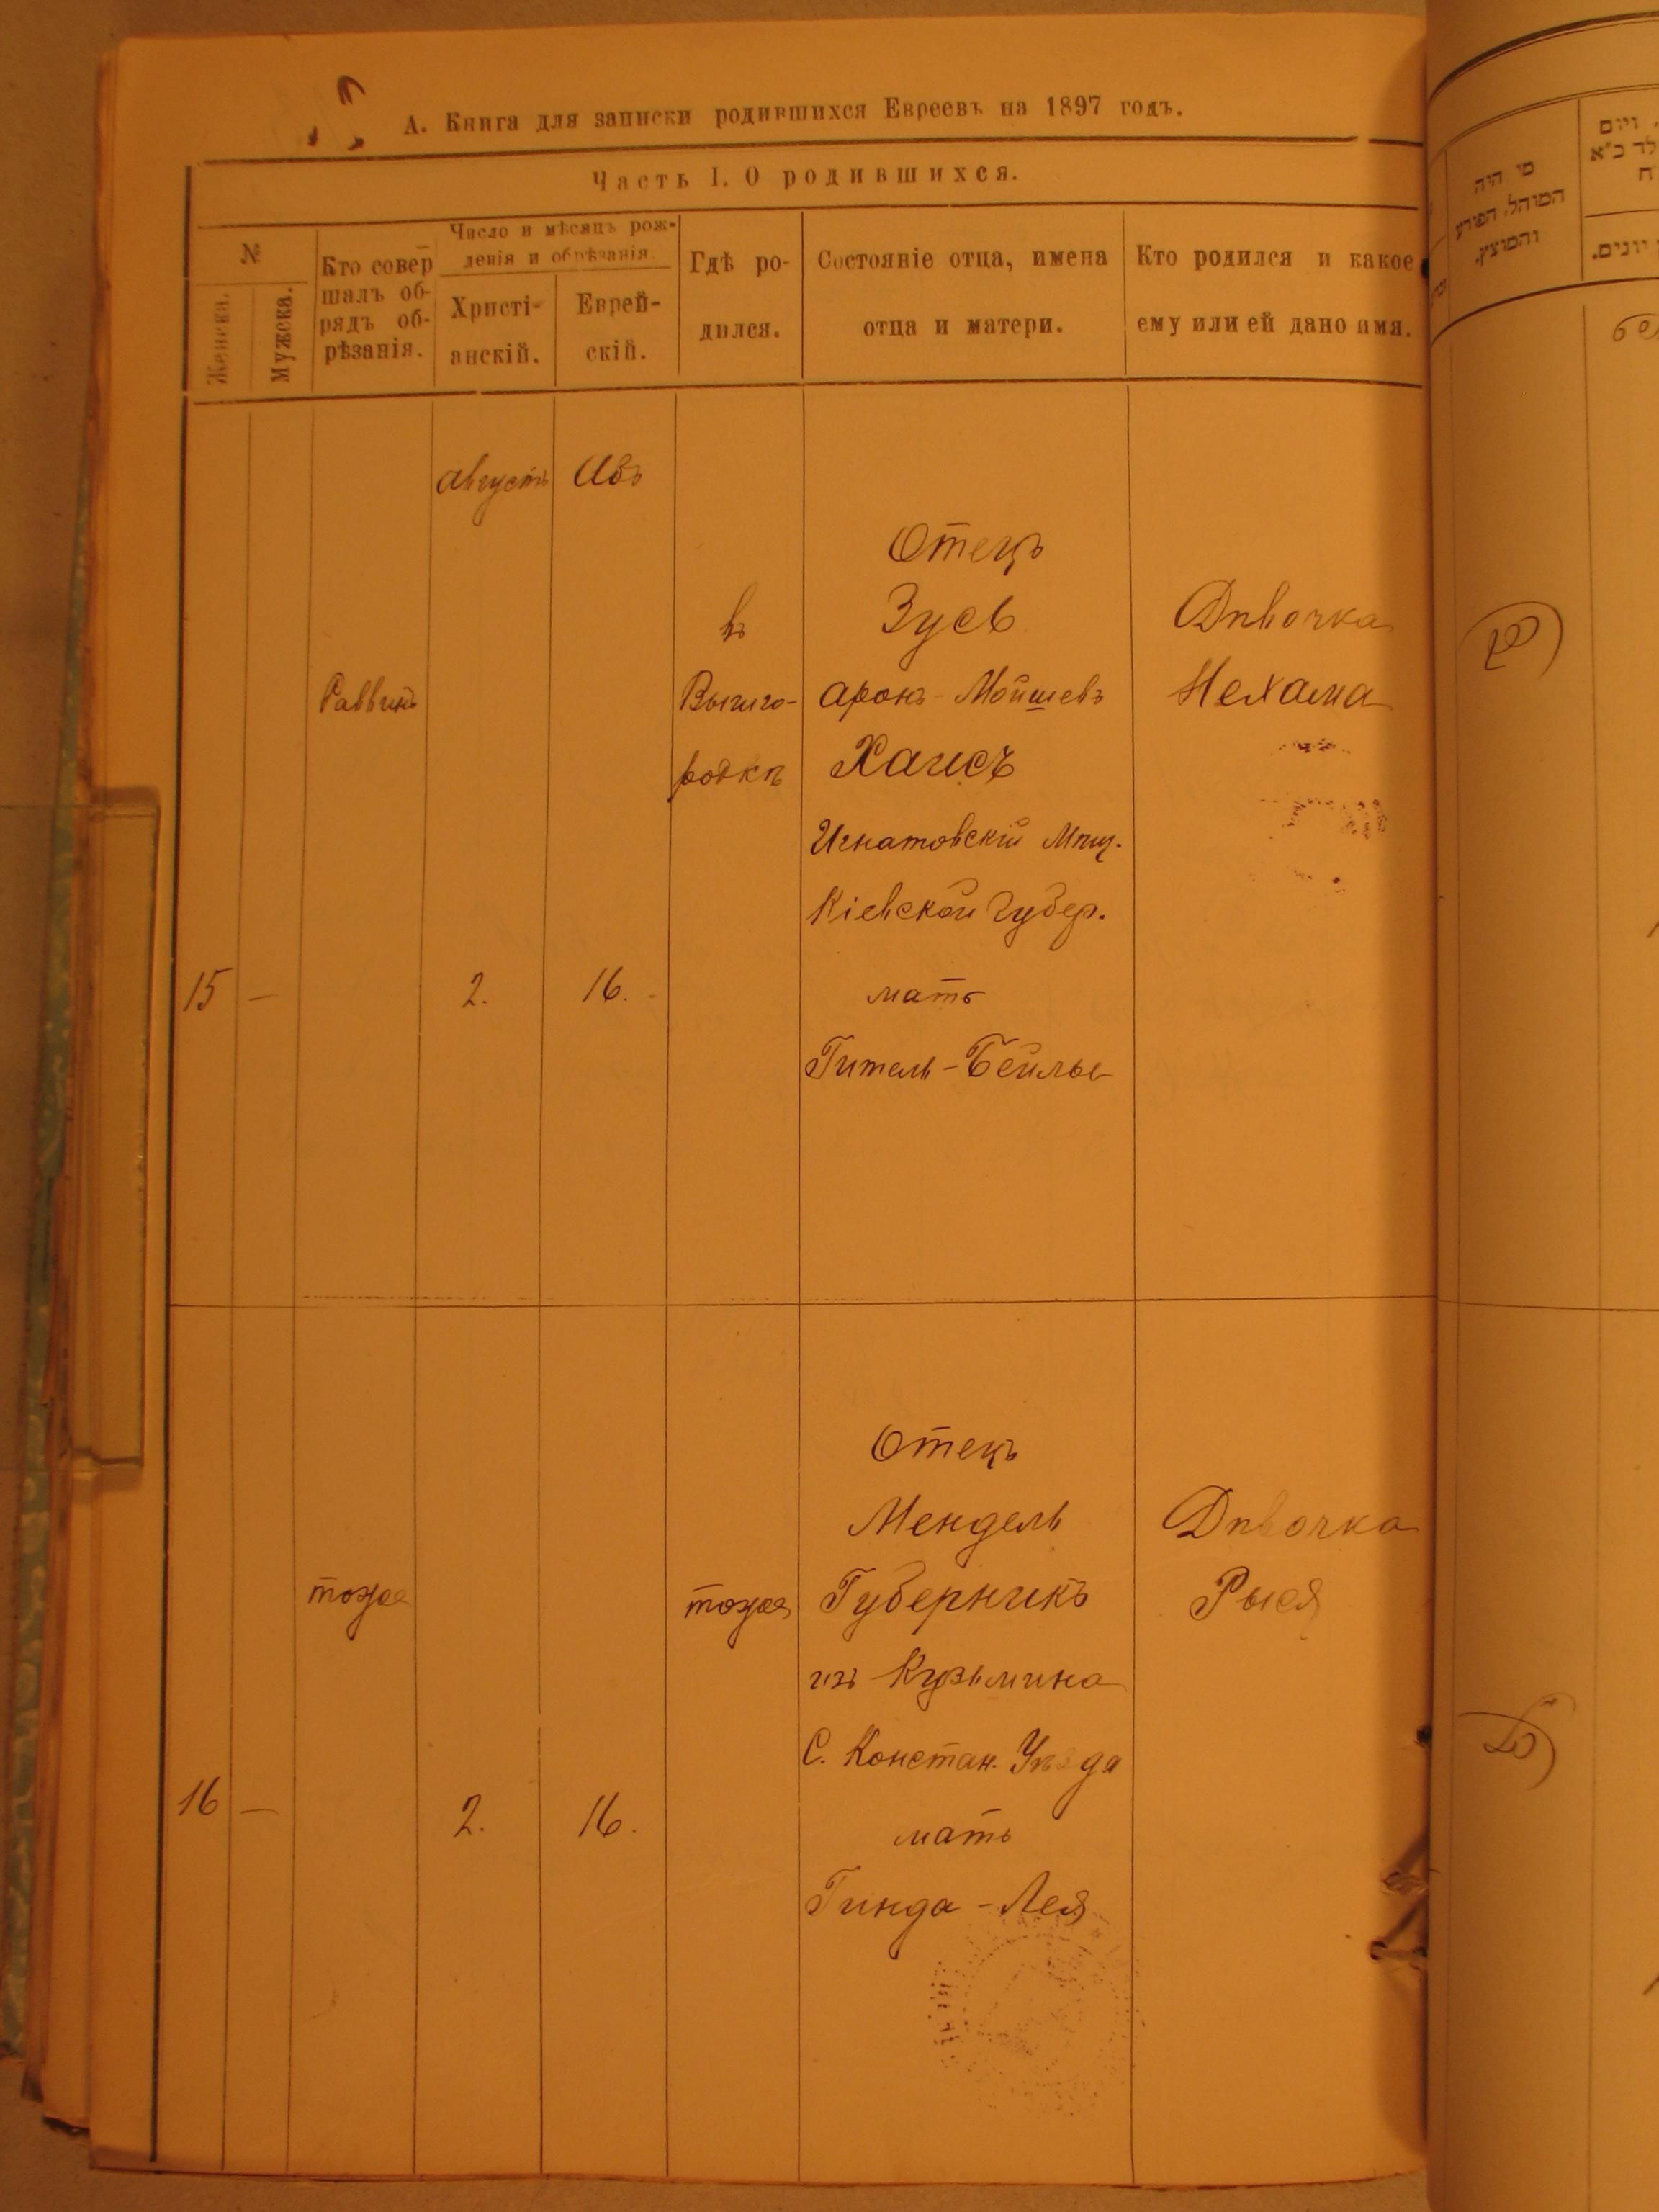 А. Книга для записки родившихся Евреевъ на 1897 годъ.
Часть I. О родившихся.
№
Женска.
Мужска.
Кто совер
шалъ об-
рядъ об-
рѣзанія.
Число и мѣсяцъ рож-
денія и обрѣзанія.
Христі-
анскій.
Еврей-
скій.
Гдѣ ро-
дился.
Состояніе отца, имена
отца и матери.
Кто родился и какое
ему или ей дано имя.
августъ
Авъ
15
—
Раввинъ
2.
16.
въ
Вышго-
родкѣ
Отецъ
Зусь
Аронъ - Мойшевъ
Хаисъ
Игнатовскій Мѣщ.
Кіевской Губер.
мать
Гитель - Бейлы
Дѣвочка
Нехама
16
—
тоже
2.
16.
тоже
Отецъ
Мендель
Губерникъ
изъ Кузьмина
С. Констан. Уѣзда
мать
Гинда - Лея
Дѣвочка
Рыся
מי היה
המוהל, הפורע
והמוצץ.
ויום
לד כ"א
ח
יונים.